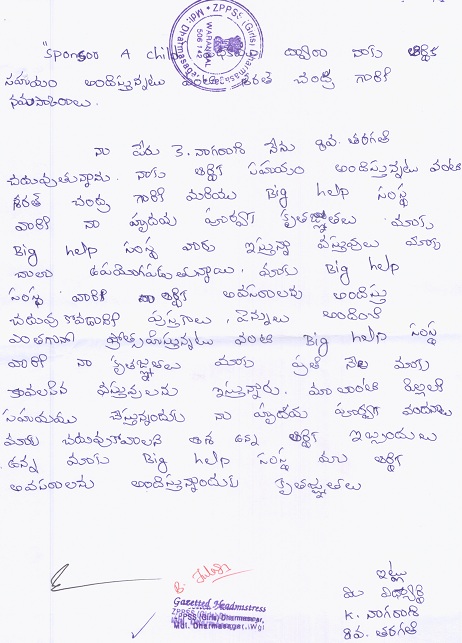 "Sponsor A child పథకము ద్వారా నాకు ఆర్థిక
సహాయం అందిస్తున్నటు వంటి శరత్ చంద్ర గారికి
నమస్కారాలు.
నా పేరు K. నాగరాణి నేను 8వ. తరగతి
చదువుతున్నాను. నాకు ఆర్థిక సహాయం అందిస్తున్నటు వంటి
శరత్ చంద్ర గారికి మరియు Big help సంస్థ
వారికి నా హృదయ పూర్వక కృతజ్ఞతలు మాకు
Big help సంస్థ వారు ఇస్తున్నా వస్తువులు మాకు
చాలా ఉపయోగపడుతున్నాయి. మాకు Big help
సంస్థ వారికి నా ఆర్థిక అవసరాలను అందిస్తు
చదువు కోవడానికి పుస్తకాలు, పెన్నులు అందించి
ఎంతగానో ప్రోత్సహిస్తున్నటు వంటి Big help సంస్థ
వారికి నా కృతజ్ఞతలు మాకు ప్రతి నెల మాకు
కావలసిన వస్తువులను ఇస్తున్నారు. మాలాంటి పిల్లలకి
సహయము చేస్తున్నందుకు నా హృదయ పూర్వక వందనాలు
మాకు చదువుకోవాలని ఆశ ఉన్న ఆర్థిక ఇబ్బందులు
ఉన్న మాకు Big help సంస్థ మా ఆర్థిక
అవసరాలను అందిస్తున్నాందుకు కృతజ్ఞతలు
ఇట్లు
మీ విద్యార్థి
K. నాగరాణి
8వ. తరగతి
Gazetted Headmistress
ZPPSS (Girls) Dharmasagar,
Mdl. Dharmasagar,
ZPPSS (Girls) Dharmasagar
WARANGAL
506 142